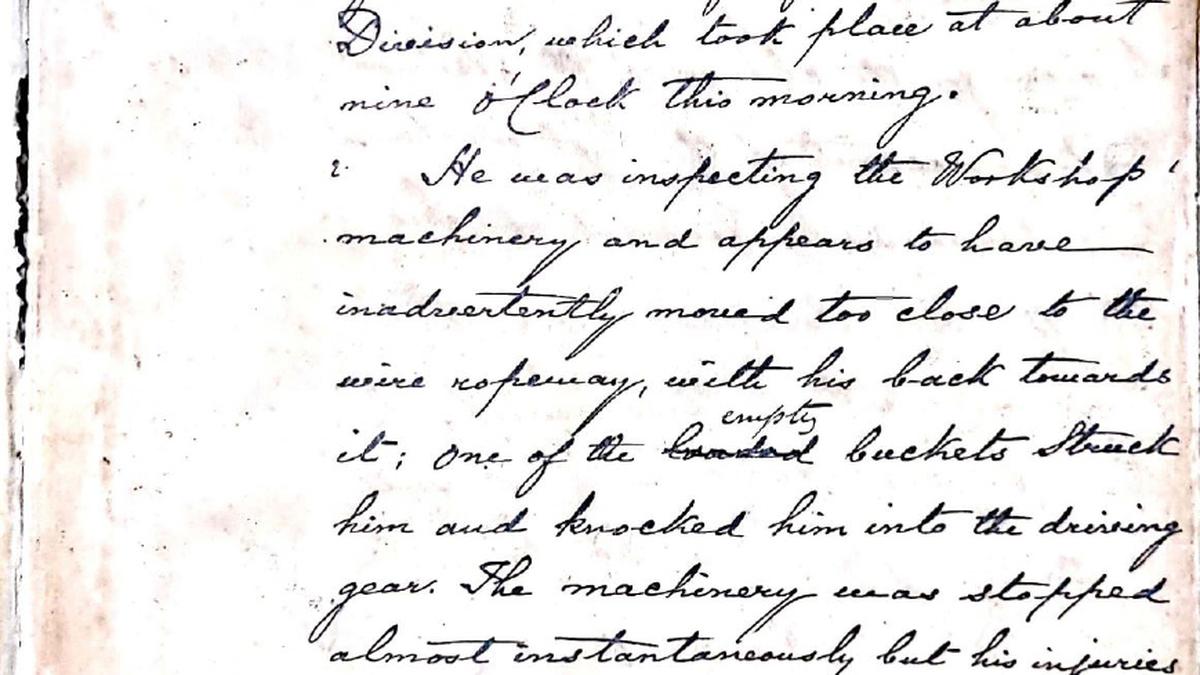 Division, which took place at about
nine o'Clock this morning.
2. He was inspecting the Workshop
machinery and appears to have
inadvertently moved too close to the
wire ropeway, with his back towards
empty
it; One of the loaded buckets Struck
him and knocked him into the driving
gear. The machinery was stopped
almost instantaneously but his injuries